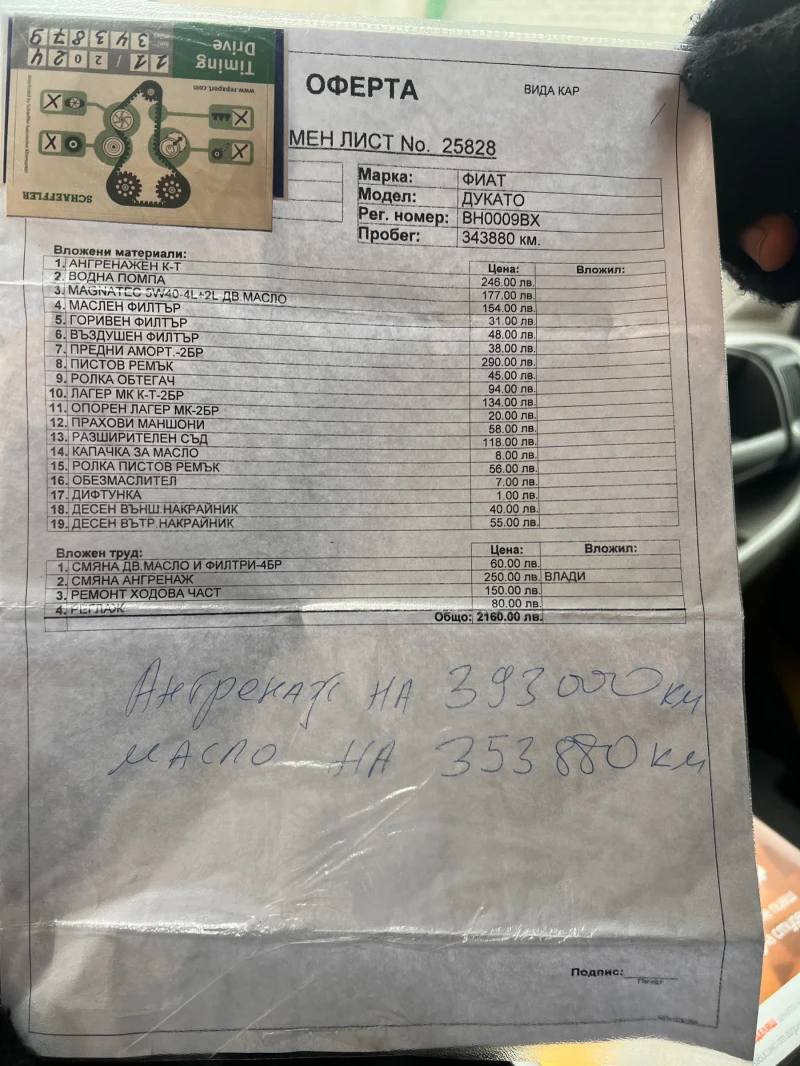 Timing
Drive
11/2024
343879
www.repxpert.com
SCHAEFFLER
ОФЕРТА
ВИДА КАР
МЕН ЛИСТ No. 25828
Марка: ФИАТ
Модел: ДУКАТО
Рег. номер: BH0009BX
Пробег: 343880 км.
Вложени материали: Цена: Вложил:
1. АНГРЕНАЖЕН К-Т 246.00 лв.
2. ВОДНА ПОМПА 177.00 лв.
3. MAGNATEC 5W40-4L+2L ДВ МАСЛО 154.00 лв.
4. МАСЛЕН ФИЛТЪР 31.00 лв.
5. ГОРИВЕН ФИЛТЪР 48.00 лв.
6. ВЪЗДУШЕН ФИЛТЪР 38.00 лв.
7. ПРЕДНИ АМОРТ.-2БР 290.00 лв.
8. ПИСТОВ РЕМЪК 45.00 лв.
9. РОЛКА ОБТЕГАЧ 94.00 лв.
10. ЛАГЕР МК К-Т-2БР 134.00 лв.
11. ОПОРЕН ЛАГЕР МК-2БР 20.00 лв.
12. ПРАХОВИ МАНШОНИ 58.00 лв.
13. РАЗШИРИТЕЛЕН СЪД 118.00 лв.
14. КАПАЧКА ЗА МАСЛО 8.00 лв.
15. РОЛКА ПИСТОВ РЕМЪК 56.00 лв.
16. ОБЕЗМАСЛИТЕЛ 7.00 лв.
17. ДИФТУНКА 1.00 лв.
18. ДЕСЕН ВЪНШ.НАКРАЙНИК 40.00 лв.
19. ДЕСЕН ВЪТР.НАКРАЙНИК 55.00 лв.
Вложен труд: Цена: Вложил:
1. СМЯНА ДВ.МАСЛО И ФИЛТРИ-4БР 60.00 лв.
2. СМЯНА АНГРЕНАЖ 250.00 лв. ВЛАДИ
3. РЕМОНТ ХОДОВА ЧАСТ 150.00 лв.
4. РЕГЛАЖ 80.00 лв.
Общо: 2160.00 лв.
Ангренаж на 393000 км
масло на 353880 км
Подпис: